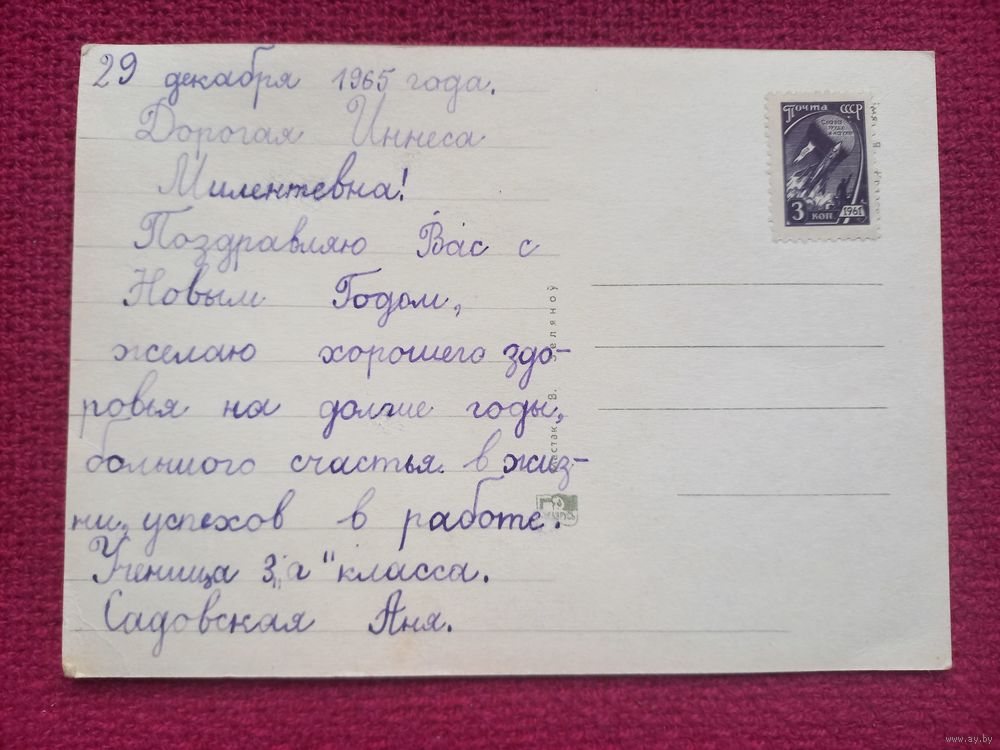 29 декабря 1965 года.
Дорогая Иннеса
Милентевна!
Поздравляю Вас с
Новым Годом,
желаю хорошего здо-
ровья на долгие годы,
большого счастья в жиз-
ни, успехов в работе.
Ученица 3 „а" класса.
Садовская Аня.
Почта СССР
Слава
труду
и науке
3 коп
1961
В. Зеляноў
БЕЛАРУСЬ
www.ay.by